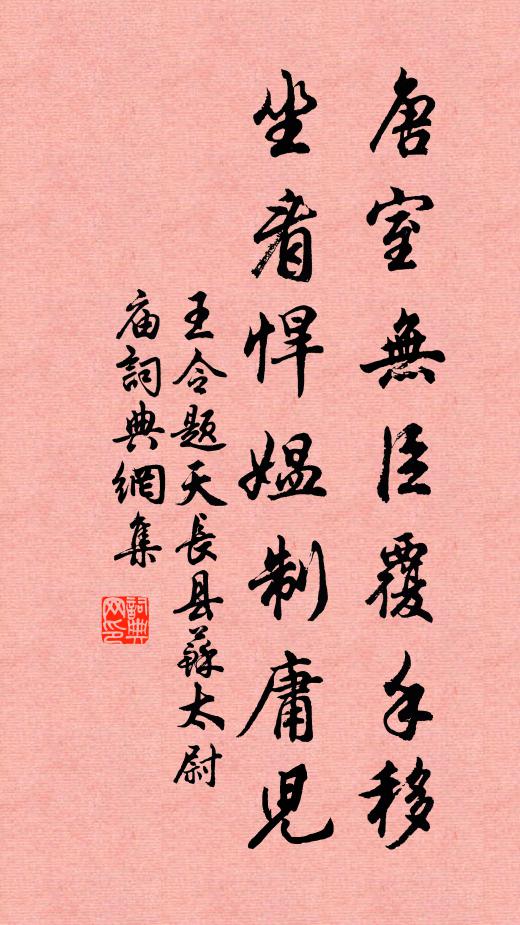 唐室無臣覆手移
坐看悍媼制庸児
王令题天长县蘇太尉
庙詞典網集
詞典
网印